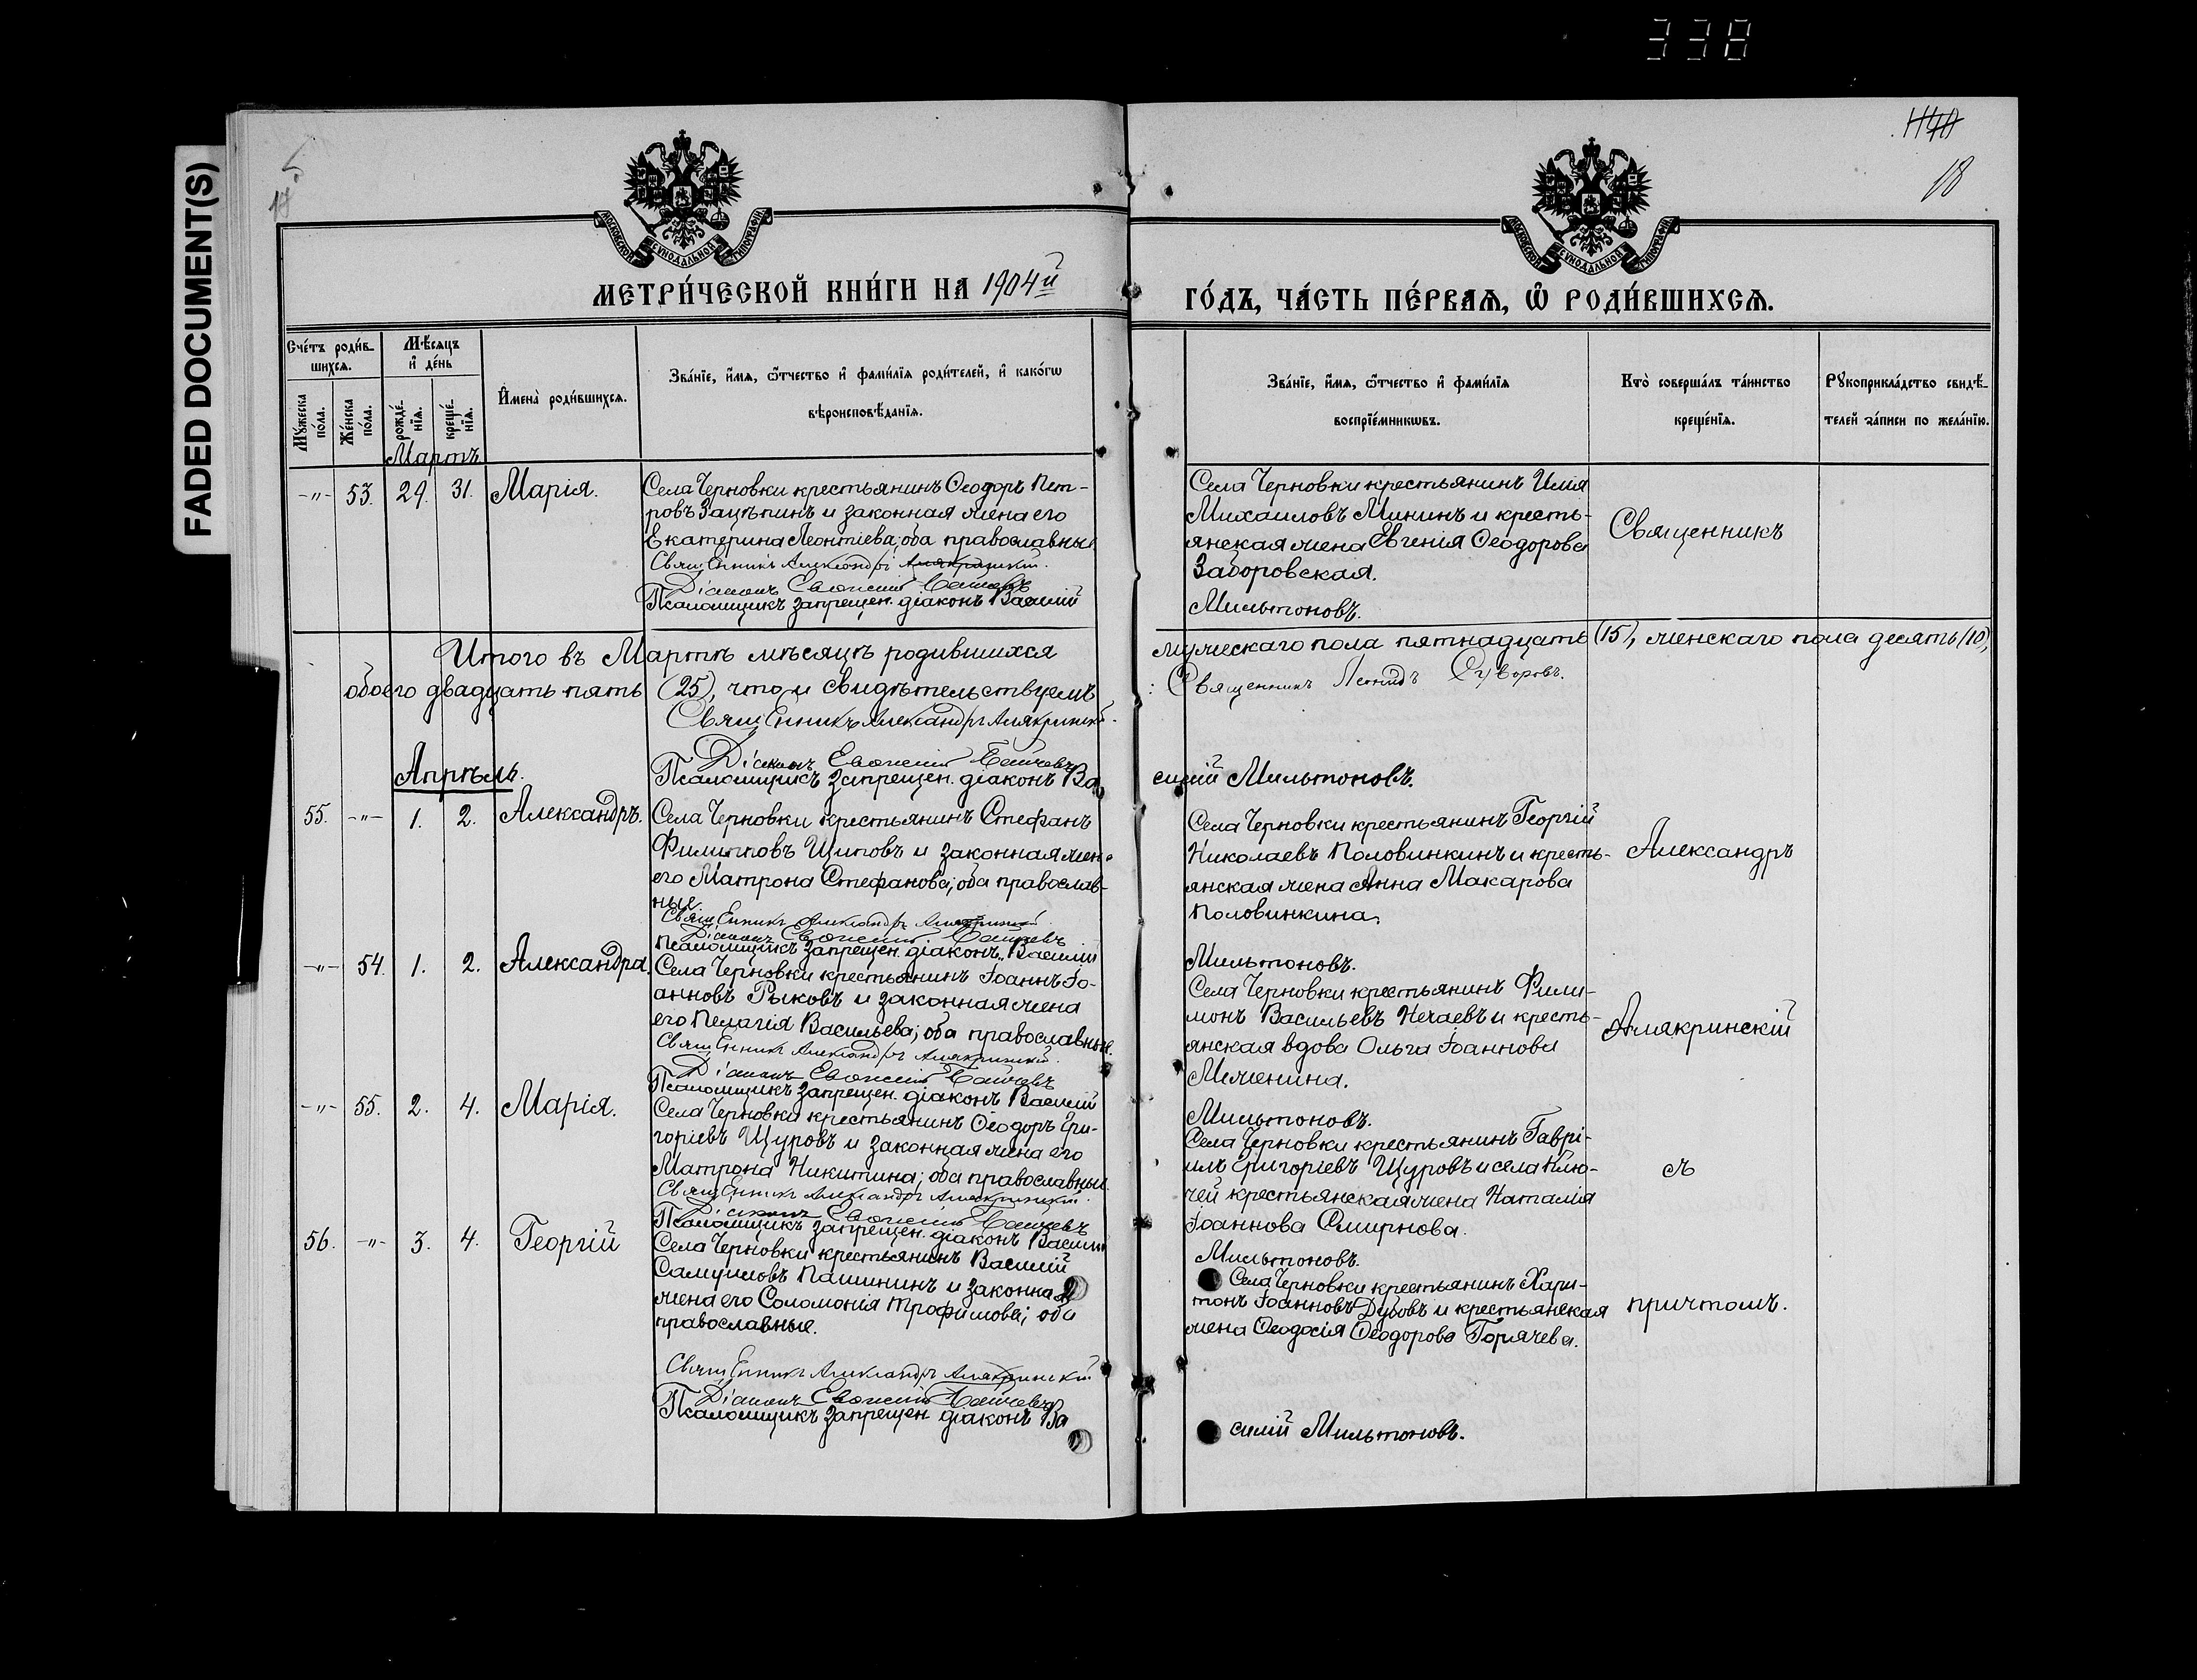 338
FADED DOCUMENT(S)
18
МОСКОВСКОЙ СѴНОДАЛЬНОЙ ТИПОГРАФІИ
МОСКОВСКОЙ СѴНОДАЛЬНОЙ ТИПОГРАФІИ
МЕТРИ́ЧЕСКОЙ КНИ́ГИ НА 1904й
ГО́ДЪ, ЧА́СТЬ ПЕ́РВАЯ, Ѿ РОДИ́ВШИХСЯ.
Сче́тъ роди́в-
шихся.
Му́жеска по́ла.
Же́нска по́ла.
Мѣ́сяцъ
и҆ де́нь
рожде́-
нїя.
креще́-
нїя.
И҆мена̀ роди́вшихся.
Зва́нїе, и҆́мя, ѻ҆́тчество и҆ фами́лїя роди́телей, и҆ како́гѡ
вѣроисповѣ́данїя.
Зва́нїе, и҆́мя, ѻ҆́тчество и҆ фами́лїя
воспрїе́мникѡвъ.
Кто̀ соверша́лъ та́инство
креще́нїя.
Рꙋкоприкла́дство свидѣ́-
телей за́писи по жела́нїю.
Мартъ
-"- 53. 29. 31. Марія.
Села Черновки крестьянинъ Ѳеодоръ Пет-
ровъ Зацѣпинъ и законная жена его
Екатерина Леонтіева; оба православные
Священникъ Александръ Алякринскій.
Діаконъ Евѳимій
Псаломщикъ запрещен. діаконъ Василій
Села Черновки крестьянинъ Илія
Михаиловъ Мининъ и кресть-
янская жена Евгенія Ѳеодорова
Заборовская.
Мильтоновъ.
Священникъ
Итого въ Мартѣ мѣсяцѣ родившихся
мужескаго пола пятнадцать (15), женскаго пола десять (10),
обоего двадцать пять (25), что и свидѣтельствуемъ
: Священникъ Леонидъ Суворовъ.
Священникъ Александръ Алякринскій.
Діаконъ Евѳимій
Псаломщикъ запрещен. діаконъ Ва
силій Мильтоновъ.
Апрѣль.
55. -"- 1. 2. Александръ.
Села Черновки крестьянинъ Стефанъ
Филипповъ Щиповъ и законная жена
его Матрона Стефанова; оба православ-
ные.
Священникъ Александръ Алякринскій
Діаконъ Евѳимій
Псаломщикъ запрещен. діаконъ Василій
Села Черновки крестьянинъ Георгій
Николаевъ Половинкинъ и кресть-
янская жена Анна Макарова
Половинкина.
Мильтоновъ.
Александръ
-"- 54. 1. 2. Александра.
Села Черновки крестьянинъ Іоаннъ Іо-
анновъ Рыковъ и законная жена
его Пелагія Васильева; оба православные.
Священникъ Александръ Алякринскій.
Діаконъ Евѳимій
Псаломщикъ запрещен. діаконъ Василій
Села Черновки крестьянинъ Фили-
монъ Васильевъ Нечаевъ и кресть-
янская вдова Ольга Іоаннова
Мильтоновъ.
Алякринскій
-"- 55. 2. 4. Марія.
Села Черновки крестьянинъ Ѳеодоръ Гри-
горіевъ Щуровъ и законная жена его
Матрона Никитина; оба православные
Священникъ Александръ Алякринскій.
Діаконъ Евѳимій
Псаломщикъ запрещен. діаконъ Василій
Села Черновки крестьянинъ Гаврі-
илъ Григоріевъ Щуровъ и села Клю-
чей крестьянская жена Наталія
Іоаннова Смирнова.
Мильтоновъ.
съ
56. -"- 3. 4. Георгій
Села Черновки крестьянинъ Василій
Самуиловъ Пашининъ и законная
жена его Соломонія Трофимова; оба
православные.
Священникъ Александръ Алякринскій
Діаконъ Евѳимій
Псаломщикъ запрещен. діаконъ Ва
Села Черновки крестьянинъ Хари-
тонъ Іоанновъ Дубовъ и крестьянская
жена Ѳеодосія Ѳеодорова Горячева.
причтомъ.
силій Мильтоновъ.